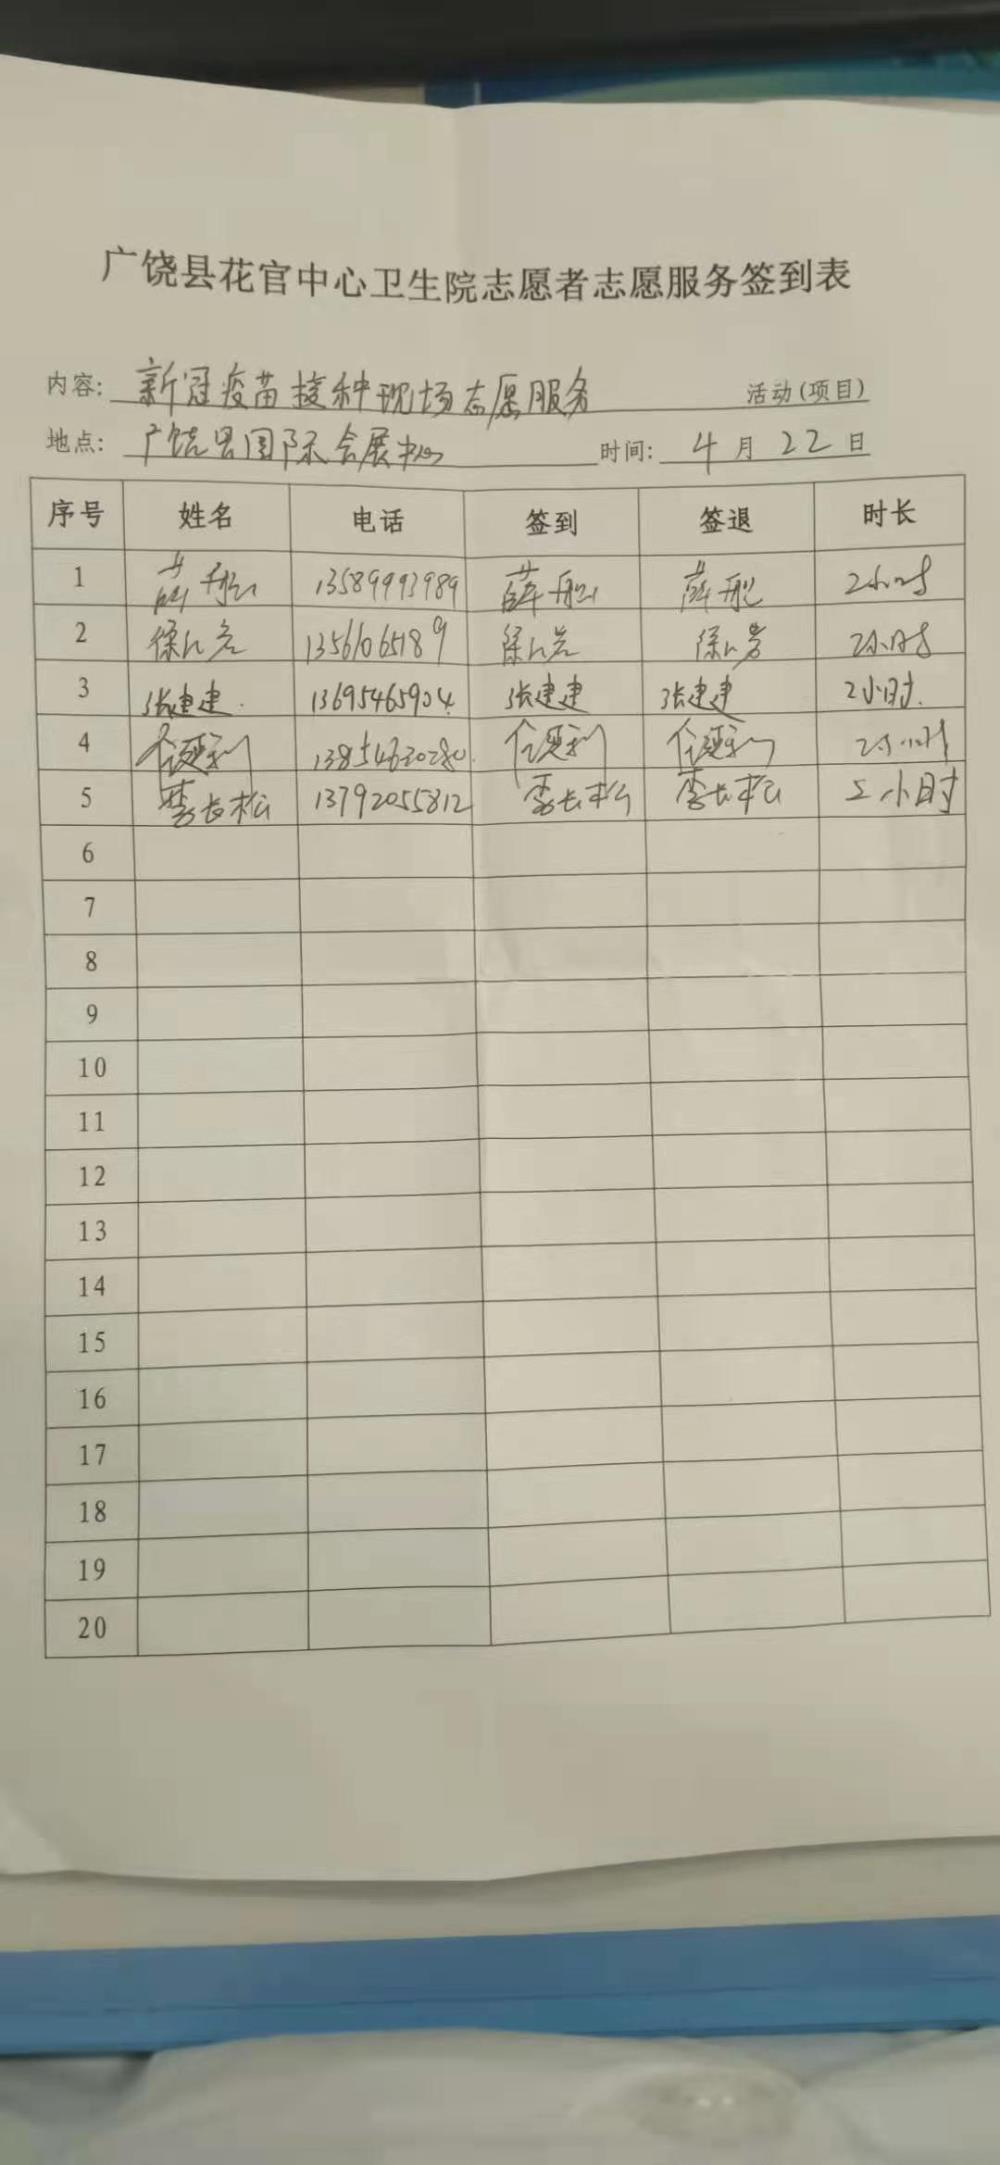 广饶县花官中心卫生院志愿者志愿服务签到表
内容: 新冠疫苗接种现场志愿服务 活动(项目)
地点: 广饶县国际会展中心 时间: 4 月 22 日
序号 姓名 电话 签到 签退 时长
1 13589993989 薛 薛 2小时
2 徐 13561065189 徐 徐 2小时
3 张建建 13695465904 张建建 张建建 2小时
4 13854630280 2小时
5 李长松 13792055812 李长松 李长松 2小时
6
7
8
9
10
11
12
13
14
15
16
17
18
19
20